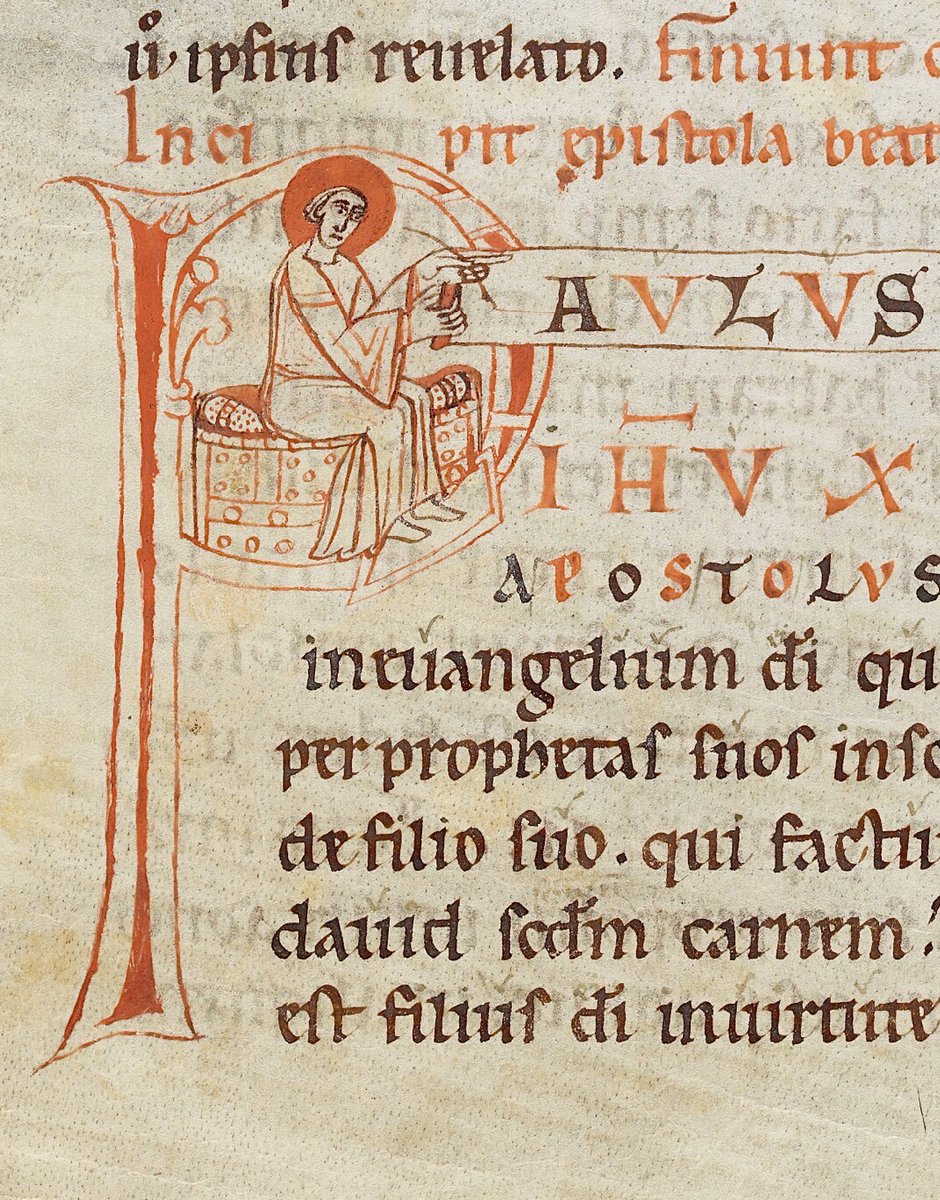 uͦ ipsius reuelato. Finiunt
Inci pit epistola beat
PAULUS
IHU X
APOSTOLUS
in euangelium di qu
per prophetas suos in sc
de filio suo. qui factu
dauid scdm carnem
est filius di in uirtute